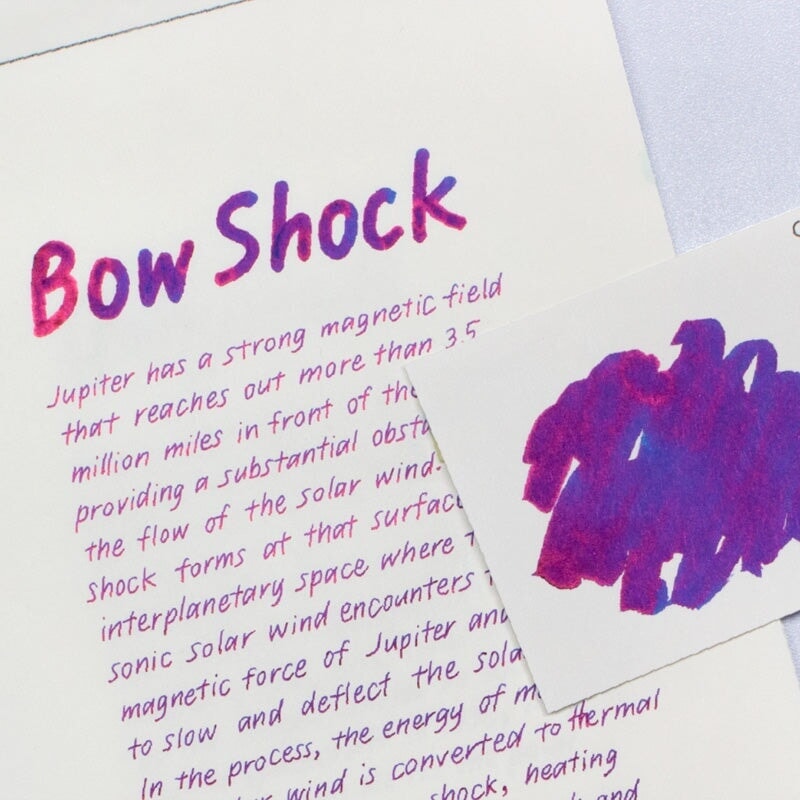 Bow Shock
Jupiter has a strong magnetic field
that reaches out more than 3.5
million miles in front of the
providing a substantial
the flow of the solar wind.
shock forms at that surface
interplanetary space where
sonic solar wind encounters
magnetic force of Jupiter and
to slow and deflect the
In the process, the energy of
wind is converted to thermal
shock, heating
and